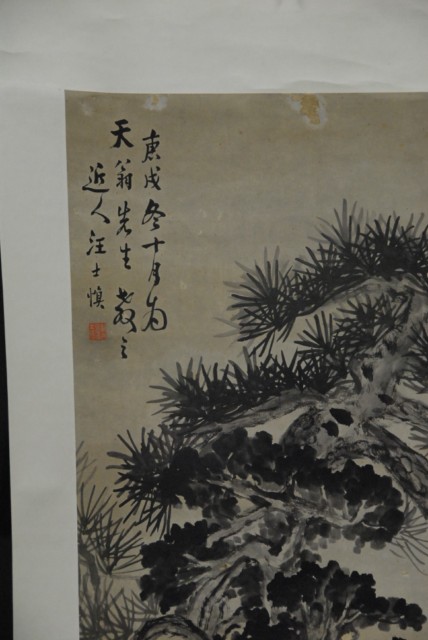 庚戌冬十月为
天翁先生教之
近人汪士慎